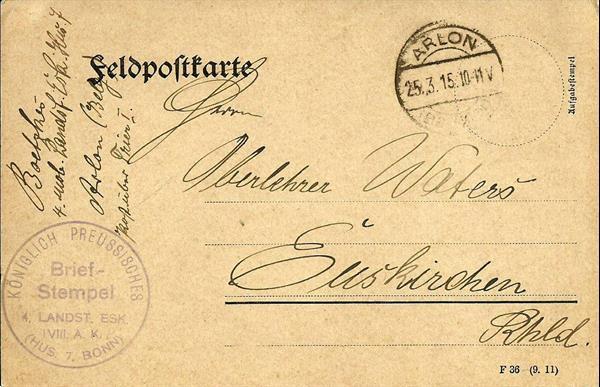 Feldpostkarte
ARLON
25.3.15.10-11V
Aufgabestempel
Boetzkes
4. mob. Landst. Esk. Hus. 7
Arlon (Belg.
Post über Trier I.
Herrn
Oberlehrer Waters
Euskirchen
Rhld.
KÖNIGLICH PREUSSISCHES
Brief-
Stempel
4. LANDST. ESK.
VIII. A. K.
(HUS. 7. BONN)
F 36 (9. 11)